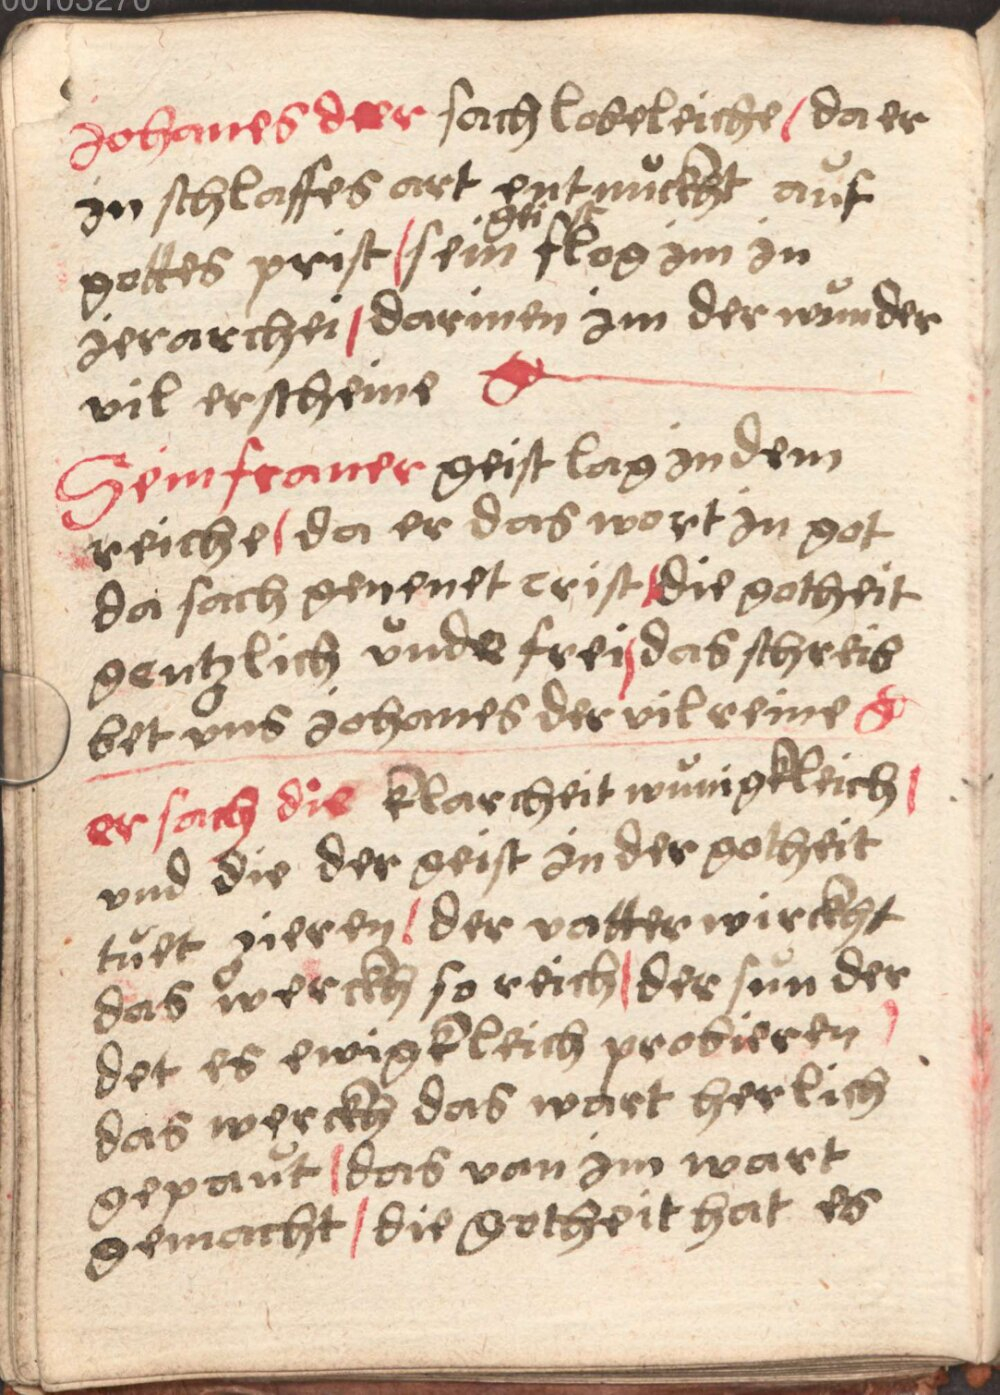 00103270
Johanes der sach lobeleiche / da er
in schlaffes art entnuckht aus
gottes prist / sein geist flog im in
jerarchei / darinen im der wunder
vil erscheine
Sein franer geist lag in dem
reiche / da er das wort in got
da sach genenet crist / die gotheit
gentzlich vnde frei / das schreib
bet vns johanes der vil reine
er sach die klarcheit wunigkleich /
vnd die der geist in der gotheit
tuet zieren / der vatter wirckht
das werckh so reich / der sun der
det es ewigkleich probieren /
das werckh das wart herlich
gepaut / das von im wart
gemacht / die gotheit hat es